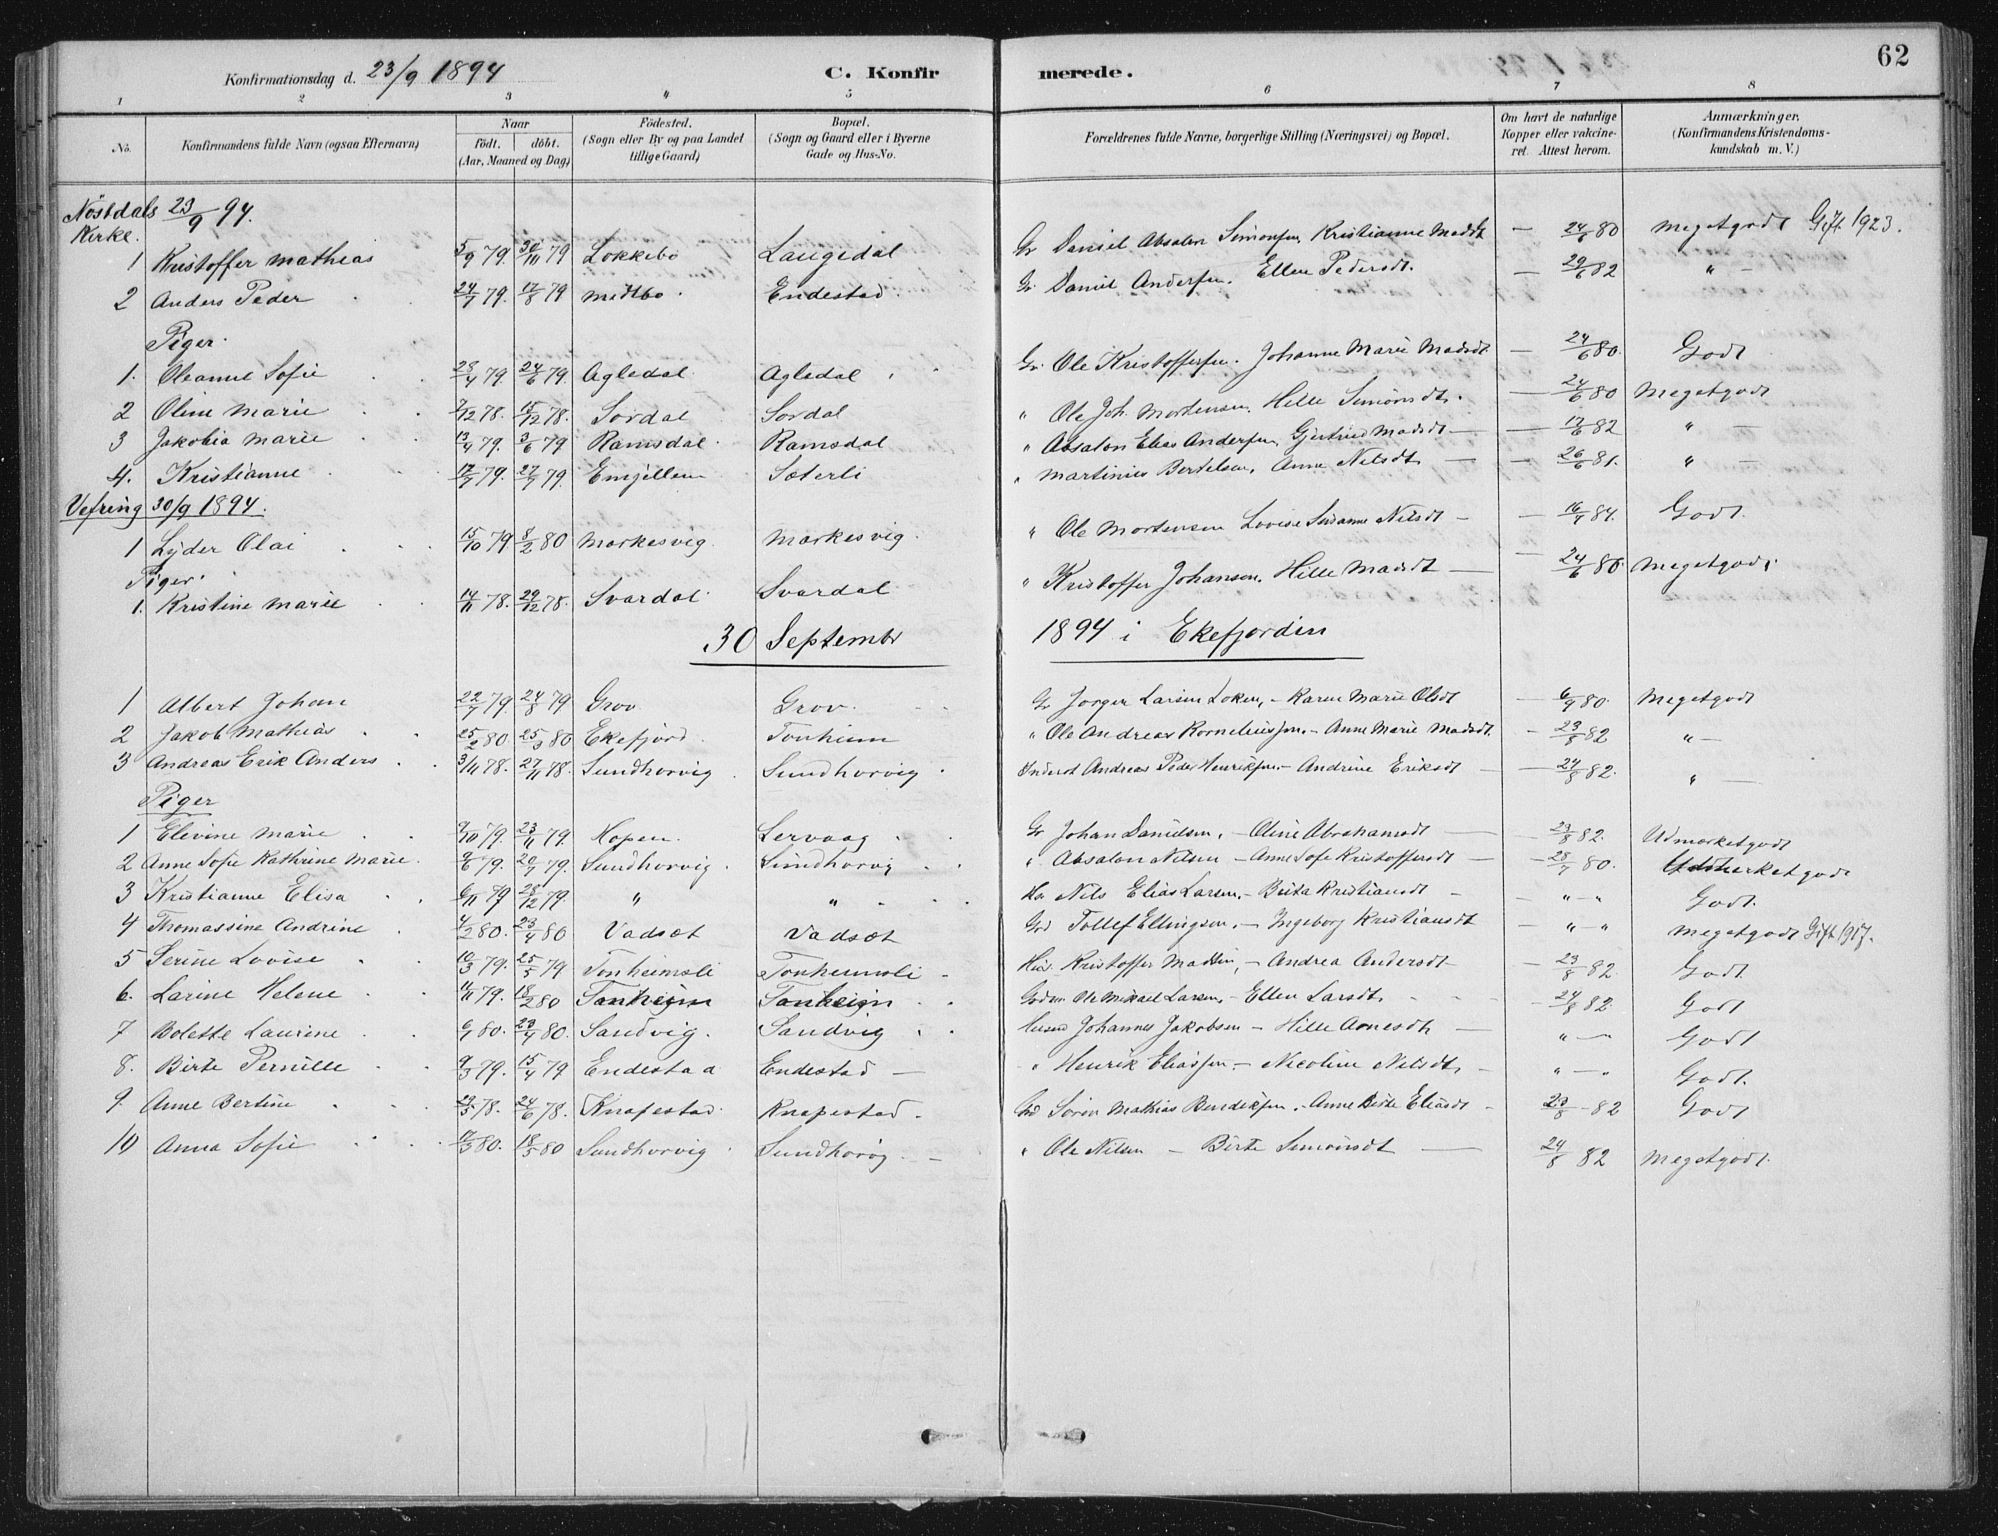 62
Konfirmationsdag d. 23/9 1894 C. Konfirmerede.
1 2 3 4 5 6 7 8
No. Konfirmandens fulde Navn (ogsaa Efternavn) Naar födt. döbt. (Aar, Maaned og Dag) Födested. (Sogn eller By og paa Landet tillige Gaard) Bopæl. (Sogn og Gaard eller i Byerne Gade og Hus-No. Forældrenes fulde Navne, borgerlige Stilling (Næringsvei) og Bopæl. Om havt de naturlige Kopper eller vakcineret. Attest herom. Anmærkninger. (Konfirmandens Kristendomskundskab m. V.)
Nöstdals Kirke. 23/9 94.
1 Kristoffer Mathias 5/9 79. 30/11 79 Lokkebö Langedal Gr Daniel Absalon Simonsen, Kristianne Madsdt — 24/6 80 Megetgodt Gift 1923.
2 Anders Peder 24/7 79. 17/8 79 Midtbö. Endestad. Gr Daniel Andersen. Ellen Pedersdt. — 29/6 82 " —
Piger.
1. Oleanne Sofie 23/4 79. 24/6 79. Agledal Agledal Gr Ole Kristoffersen. Johanne Marie Madsdt — 24/6 80. Godt
2 Oline Marie 7/12 78. 15/12 78. Sordal Sordal " Ole Joh. Mortensen, Hille Simonsdt. — 24/6 80 Megetgodt
3 Jakobia Marie 13/4 79. 3/6 79 Ramsdal. Ramsdal " Absalon Elias Andersen, Gjertrud Madsdt — 17/6 82 " —
4. Kristianne 17/7 79. 27/7 79. Emjellem Sæterli " Martinius Bertelsen, Anne Nilsdt — 26/6 81. " —
Vefring 30/9 1894.
1 Lyder Olai 15/10 79 8/2 80 Markesvig. Markesvig. " Ole Mortensen Lovise Susanne Nilsdt — 16/7 84. Godt.
Piger.
1. Kristine Marie 14/11 78. 29/12 78. Svardal Svardal " Kristoffer Johansen, Hille Madsdt — 24/6 80 Megetgodt
30 Septembr 1894 i Ekefjorden
1 Albert Johan 22/7 79. 24/8 79 Grov Grov. Gr Jörger Larsen Loken, — Karen Marie Olsdt — 6/9 80. Megetgodt
2 Jakob Mathias 25/2 80 25/3 80 Ekefjord Tonheim " Ole Andreas Korneliussen. — Anne Marie Madsdt. — 23/8 82 " —
3 Andreas Erik Anders 3/11 78. 27/11 78. Sundhorvig Sundhorvig Inderst Andreas Peder Henriksen — Andrine Eriksdt — 24/8 82. " —
Piger
1 Elevine Marie 9/10 79. 23/11 79. Hopen. Lervaag Gr Johan Danielsen, — Oline Abrahamsdt — 23/8 82. Udmærketgodt
2 Anne Sofie Kathrine Marie 9/6 79. 20/7 79. Sundhorvig Sundhorvig " Absalon Nilsen — Anne Sofie Kristoffersdt — 28/7 80. Udmærketgodt
3 Kristianne Elisa 6/11 79 28/12 79. " " Hm Nils Elias Larsen, — Birta Kristiansdt — " — " Godt.
4 Thomassine Andrine 4/2 80. 23/4 80 Vadsæt Vadsæt Gr Tollef Ellingsen, — Ingeborg Kristiansdt — " — " Megetgodt Gift 1917.
5 Serine Lovise 10/3 79. 25/5 79 Tonheimsli Tonheimsli Kristoffer Madsen, — Andrea Andersdt — 23/8 82. Godt
6. Larine Helene 11/11 79. 18/2 80 Tonheim Tonheim Ole Mikael Larsen, — Ellen Larsdt. 24/8 82. Godt
7 Bolette Laurene 6/1 80. 23/4 80. Sandvig. Sandvig Johannes Jakobsen — Hille Arnesdt. — " — Godt
8. Birte Pernille 9/3 79. 15/4 79 Endestad Endestad — " Henrik Eliassen — Nicoline Nilsdt, — " — " Godt.
9. Anne Bertine 23/5 78. 24/6 78. Knapestad Knapestad. Gr Sören Mathias Bendiksen, Anne Birte Eliasdt — 23/8 82 Godt
10 Anna Sofie 17/3 80. 18/5 80 Sundhorvig Sundhorvig. — " Ole Nilsen — Birte Simonsdt — 24/8 82 Megetgodt.